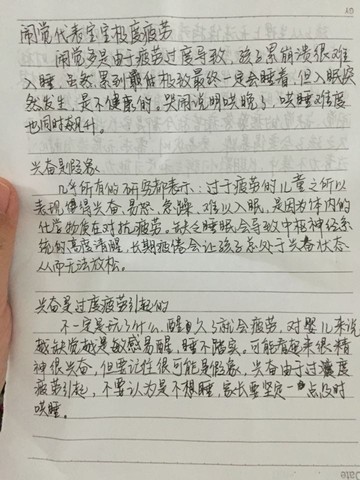 闹觉代表宝宝极度疲劳
闹觉多是由于疲劳过度导致，孩子累崩溃很难
入睡，虽然累到最低极致最终一定会睡着，但入眠突
然发生，是不健康的，哭闹说明哄晚了，哄睡难度
也同时飙升。
兴奋是假象
几乎所有的研究都表示：过于疲劳的儿童之所以
表现得兴奋、易怒、急躁、难以入眠，是因为体内的
化学物质在对抗疲劳。缺乏睡眠会导致中枢神经系
统的高度清醒，长期疲倦会让孩子总处于兴奋状态
从而无法放松。
兴奋是过度疲劳引起的
不一定是玩了什么，醒久了就会疲劳，对婴儿来说
越缺觉越是敏感易醒，睡不踏实。可能看起来很精
神很兴奋，但要记住很可能是假象，兴奋由于过度
疲劳引起，不要认为是不想睡，家长要坚定一点及时
哄睡。